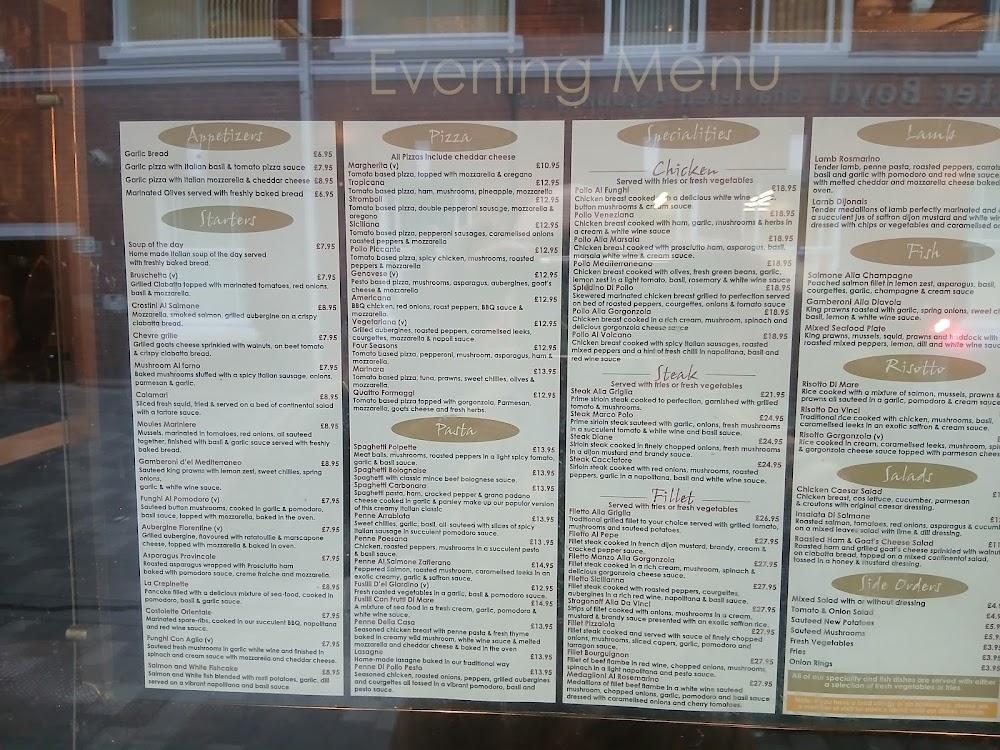 Evening Menu
Appetizers
Garlic Bread £6.95
Garlic pizza with Italian basil & tomato pizza sauce £7.95
Garlic pizza with Italian mozzarella & cheddar cheese £8.95
Marinated Olives served with freshly baked bread £6.95
Starters
Soup of the day £7.95
Home made Italian soup of the day served
with freshly baked bread.
Bruschetta (v) £7.95
Grilled Ciabatta topped with marinated tomatoes, red onions,
basil & mozzarella.
Crostini Al Salmone £8.95
Mozzarella, smoked salmon, grilled aubergine on a crispy
ciabatta bread.
Chevre grille £7.95
Grilled goats cheese sprinkled with walnuts, on beet tomato
& crispy ciabatta bread.
Mushroom Al forno £7.95
Baked mushrooms stuffed with a spicy Italian sausage, onions,
parmesan & garlic.
Calamari £8.95
Sliced fresh squid, fried & served on a bed of continental salad
with a tartare sauce.
Moules Mariniere £8.95
Mussels, marinated in tomatoes, red onions, all sauteed
together, finished with basil & garlic sauce served with freshly
breadly bread.
Gamberoni d'el Mediterraneo £8.95
Sauteed king prawns with lemon zest, sweet chillies, spring
onions,
garlic & white wine sauce.
Funghi Al Pomodoro (v) £7.95
Sauteed button mushrooms, cooked in garlic & pomodoro,
basil sauce, topped with mozzarella, baked in the oven.
Aubergine Fiorentine (v) £7.95
Grilled aubergine, flavoured with ratatouille & marscapone
cheese, topped with mozzarella & baked in oven.
Asparagus Provincale £7.95
Roasted asparagus wrapped with Prosciutto ham
baked with pomodoro sauce, creme fraiche and mozzarella.
La Crepinette £8.95
Pancake filled with a delicious mixture of sea-food, cooked in
pomodoro, basil & garlic sauce.
Costolette Orientale £7.95
Marinated spare-ribs, cooked in our succulent BBQ, napolitana
and red wine sauce.
Funghi Con Aglio (v) £7.95
Sauteed fresh mushrooms in garlic white wine and finished in
spinach and cream sauce with mozzarella and cheddar cheese.
Salmon and White Fishcake £8.95
Salmon and White fish blended with rosti potatoes, garlic, dill
served on a vibrant napolitiana and basil sauce
Pizza
All Pizzas include cheddar cheese
Margherita (v) £10.95
Tomato based pizza, topped with mozzarella & oregano
Tropicana £12.95
Tomato based pizza, ham, mushrooms, pineapple, mozzarella
Stromboli £12.95
Tomato based pizza, double pepperoni sausage, mozzarella &
oregano
Siciliana £12.95
Tomato based pizza, pepperoni sausages, caramelised onions
roasted peppers & mozzarella
Pollo Piccante £12.95
Tomato based pizza, spicy chicken, mushrooms, roasted
peppers & mozzarella
Genovese (v) £12.95
Pesto based pizza, mushrooms, asparagus, aubergines, goat's
cheese & mozzarella
Americana £12.95
BBQ chicken, red onions, roast peppers, BBQ sauce &
mozzarella.
Vegetariana (v) £12.95
Grilled aubergines, roasted peppers, caramelised leeks,
courgettes, mozzarella & napoli sauce.
Four Seasons £12.95
Tomato based pizza, pepperoni, mushroom, asparagus, ham &
mozzarella.
Marinara £13.95
Tomato based pizza, tuna, prawns, sweet chillies, olives &
mozzarella.
Quattro Formaggi £12.95
Tomato based pizza topped with gorgonzola, Parmesan,
mozzarella, goats cheese and fresh herbs.
Pasta
Spaghetti Polpette £13.95
Meat balls, mushrooms, roasted peppers in a light spicy tomato,
garlic & basil sauce.
Spaghetti Bolognaise £13.95
Spaghetti with classic mince beef bolognese sauce.
Spaghetti Carbonara £13.95
Spaghetti pasta, ham, cracked pepper & grana padano
cheese cooked in garlic & parsley make up our popular version
of this creamy Italian classic
Penne Arrabiata £13.95
Sweet chillies, garlic, basil, all sauteed with slices of spicy
Italian sausage in succulent pomodoro sauce.
Penne Paesana £13.95
Chicken, roasted peppers, mushrooms in a succulent pesto
& basil sauce.
Penne Al Salmone Zafferano £14.95
Peppered Salmon, roasted mushroom, caramelised leeks in an
exotic creamy, garlic & saffron sauce.
Fusilli D'el Giardino (v) £12.95
Fresh roasted vegetables in a garlic, basil & pomodoro sauce.
Fusilli Con Frutti Di Mare £14.95
A mixture of sea food in a fresh cream, garlic, pomodoro &
white wine sauce.
Penne Della Casa £13.95
Seasoned chicken breast with penne pasta & fresh thyme
baked in creamy wild mushroom, white wine sauce & melted
mozzarella and cheddar cheese & baked in the oven
Lasagne £13.95
Home-made lasagne baked in our traditional way
Penne Di Pollo Pesto £13.95
Seasoned chicken, roasted onions, peppers, grilled aubergines
and courgettes all tossed in a vibrant pomodoro, basil and
pesto sauce.
Specialities
Chicken
Served with fries or fresh vegetables
Pollo Al Funghi £18.95
Chicken breast cooked in a delicious white wine,
button mushrooms & cream sauce.
Pollo Veneziana £18.95
Chicken breast cooked with ham, garlic, mushrooms & herbs in
a cream & white wine sauce
Pollo Alla Marsala £18.95
Chicken breast cooked with prosciuto ham, asparagus, basil,
marsala white wine & cream sauce.
Pollo Mediterraneano £18.95
Chicken breast cooked with olives, fresh green beans, garlic,
lemon zest in a light tomato, basil, rosemary & white wine sauce
Spiedino Di Pollo £18.95
Skewered marinated chicken breast grilled to perfection served
on bed of roasted peppers, courgettes, onions & tomato sauce
Pollo Alla Gorgonzola £18.95
Chicken breast cooked in a rich cream, mushroom, spinach and
delicious gorgonzola cheese sauce
Pollo Al Volcano £18.95
Chicken breast cooked with spicy Italian sausages, roasted
mixed peppers and a hint of fresh chilli in napolitana, basil and
red wine sauce
Steak
Served with fries or fresh vegetables
Steak Alla Griglia £21.95
Prime sirloin steak cooked to perfection, garnished with grilled
tomato & mushrooms.
Steak Marco Polo £24.95
Prime sirloin steak sauteed with garlic, onions, fresh mushrooms
in a succulent tomato & white wine and basil sauce.
Steak Diane £24.95
Sirloin steak cooked in finely chopped onions, fresh mushrooms
in a dijon mustard and brandy sauce.
Steak Cacciatore £24.95
Sirloin steak cooked with red onions, mushrooms, roasted
peppers, garlic in a napolitana, basil and white wine sauce.
Fillet
Served with fries or fresh vegetables
Filetto Alla Griglia £26.95
Traditional grilled fillet to your choice served with grilled tomato,
mushrooms and sauteed potatoes.
Filetto Al Pepe £27.95
Fillet steak cooked in french dijon mustard, brandy, cream &
cracked pepper sauce.
Filetto Manzo Alla Gorgonzola £27.95
Fillet steak cooked in a rich cream, mushroom, spinach &
delicious gorgonzola cheese sauce.
Filetto Sicilianna £27.95
Fillet steak cooked with roasted peppers, courgettes,
aubergines in a rich red wine, napolitana & basil sauce.
Stroganoff Alla Da Vinci £27.95
Strips of fillet cooked with onions, mushrooms in a cream,
mustard & brandy sauce presented with an exotic saffron rice.
Fillet Pizzaiola £27.95
Fillet steak cooked and served with sauce of finely chopped
onions, mushrooms, sliced capers, garlic, pomodoro and
tarragon sauce.
Fillet Bourguignon £27.95
Fillet of beef flambe in red wine, chopped onions, mushrooms,
spinach in a light napolitana and pesto sauce.
Medaglioni Al Rosemarino £27.95
Medallions of fillet beef flambe in a white wine sauteed
mushroom, chopped onions, garlic, pomodoro and basil sauce
dressed with caramelised onions and cherry tomatoes.
Lamb
Lamb Rosmarino
Tender lamb, penne pasta, roasted peppers,
basil and garlic with pomodoro and red wine sauce
with melted cheddar and mozzarella cheese baked
oven.
Lamb Dijonais
Tender medallions of lamb perfectly marinated and
a succulent jus of saffron dijon mustard and white
dressed with chips or vegetables and caramelised
Fish
Salmone Alla Champagne
Poached salmon fillet in lemon zest, asparagus, basil,
courgettes, garlic, champagne & cream sauce
Gamberoni Alla Diavola
King prawns roasted with garlic, spring onions, sweet
basil, lemon & white wine sauce.
Mixed Seafood Plate
King prawns, mussels, squid, prawns and haddock with
roasted mixed peppers, lemon, dill and white wine
Risotto
Risotto Di Mare
Rice cooked with a mixture of salmon, mussels, prawns &
prawns all sauteed in a garlic, pomodoro & cream sauce
Risotto Da Vinci
Traditional rice cooked with chicken, mushrooms, basil,
caramelised leeks in an exotic saffron & cream sauce.
Risotto Gorgonzola (v)
Rice cooked in cream, caramelised leeks, mushroom,
& gorgonzola cheese sauce topped with parmesan
Salads
Chicken Caesar Salad
Chicken breast, cos lettuce, cucumber, parmesan
& croutons with original caesar dressing.
Insalata Di Salmone
Roasted salmon, tomatoes, red onions, asparagus &
on a mixed leaves salad with lime & dill dressing.
Roasted Ham & Goat's Cheese Salad
Roasted ham and grilled goat's cheese sprinkled with
on ciabatta bread, topped on a mixed continental salad,
tossed in a honey & mustard dressing.
Side Orders
Mixed Salad with or without dressing
Tomato & Onion Salad
Sauteed New Potatoes
Sauteed Mushrooms
Fresh Vegetables
Fries
Onion Rings
All of our specialty and fish dishes are served with either
a selection of fresh vegetables or fries.